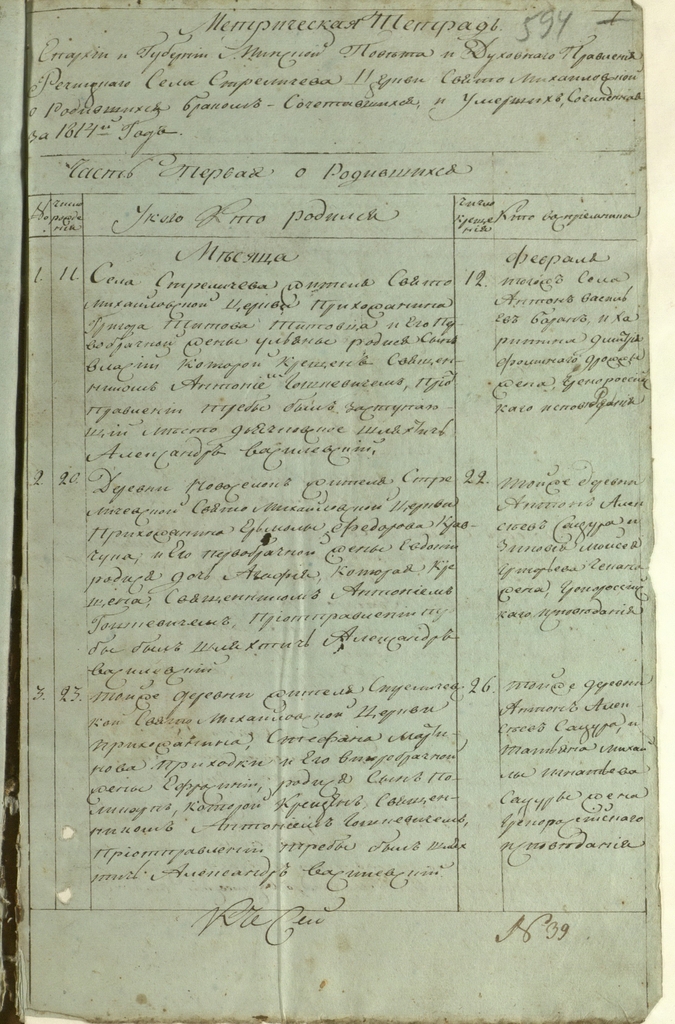 Метрическая Тетрадь. 594 1
Епархіи и Губерніи Минской Повѣта и Духовнаго Правленія
Речицкаго Села Стреличева Церкви Свято Михайловской
о Родившихся бракомъ Сочетавшихся, и Умершихъ, Сочиненная
за 1814й Годъ.
Часть Первая о Родившихся
№ число рожденія У кого Кто родился число крещенія Кто воспріемники
Мѣсяца Февраля
1. 11. Села Стреличева жителя Свято
Михайловской Церкви Прихожанина
Григора Титова и Его Пе
вобрачной жены родился Сынъ
Власій Которой Крещенъ Священ-
никомъ Антоніемъ Гошкевичемъ, При
отправленіи требы былъ заступаю-
щій мѣсто дьячковское шляхтичь
Александръ Василевскій.
12. тогожъ Села
Антонъ Василь
евъ Баранъ, и Ха
ритина Дмитра
жена, Грекороссій
скаго исповѣданія
2. 20. Деревни жителя Стре
личевской Свято Михайловской Церкви
Прихожанина Ермолы Федорова Крав-
чуна, и Его первобрачной жены Евдокіи
родися дочь Агафія, Которая Кре
щена, Священникомъ Антоніемъ
Гошкевичемъ, При отправленіи тре
бы былъ шляхтичь Александръ
Василевскій
22. тойже деревни
Антонъ Алек
сѣевъ Сацура и
Зиновія Моисея
Григорьева
жена, Грекороссій
скаго исповѣданія
3. 23. тойже деревни жителя Стреличев
ской Свято Михайловской Церкви
прихожанина, Стефана
Приходки и Его второбрачной
жены родися Сынъ По
ликарпъ, Которой Крещенъ, Священ-
никомъ Антоніемъ Гошкевичемъ,
при отправленіи требы былъ шлях
тичь Александръ Василевскій
26. тойже деревни
Антонъ Алек
сѣевъ Сацура, и
Татьяна Михай
лы Игнатьева
Сацуры жена
Грекороссійскаго
исповѣданія
Къ Сей
№ 39